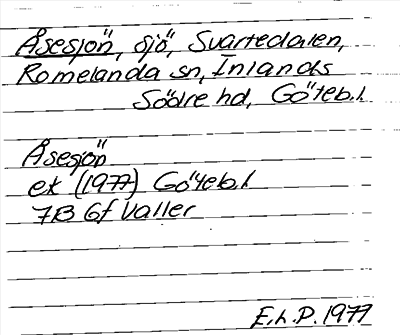 Åsesjön, sjö, Svartedalen,
Romelanda sn, Inlands
Södre hd, Göteb.l.
Åsesjön
ek (1977) Göteb.l
7B 6f Valler
E.h.P. 1977